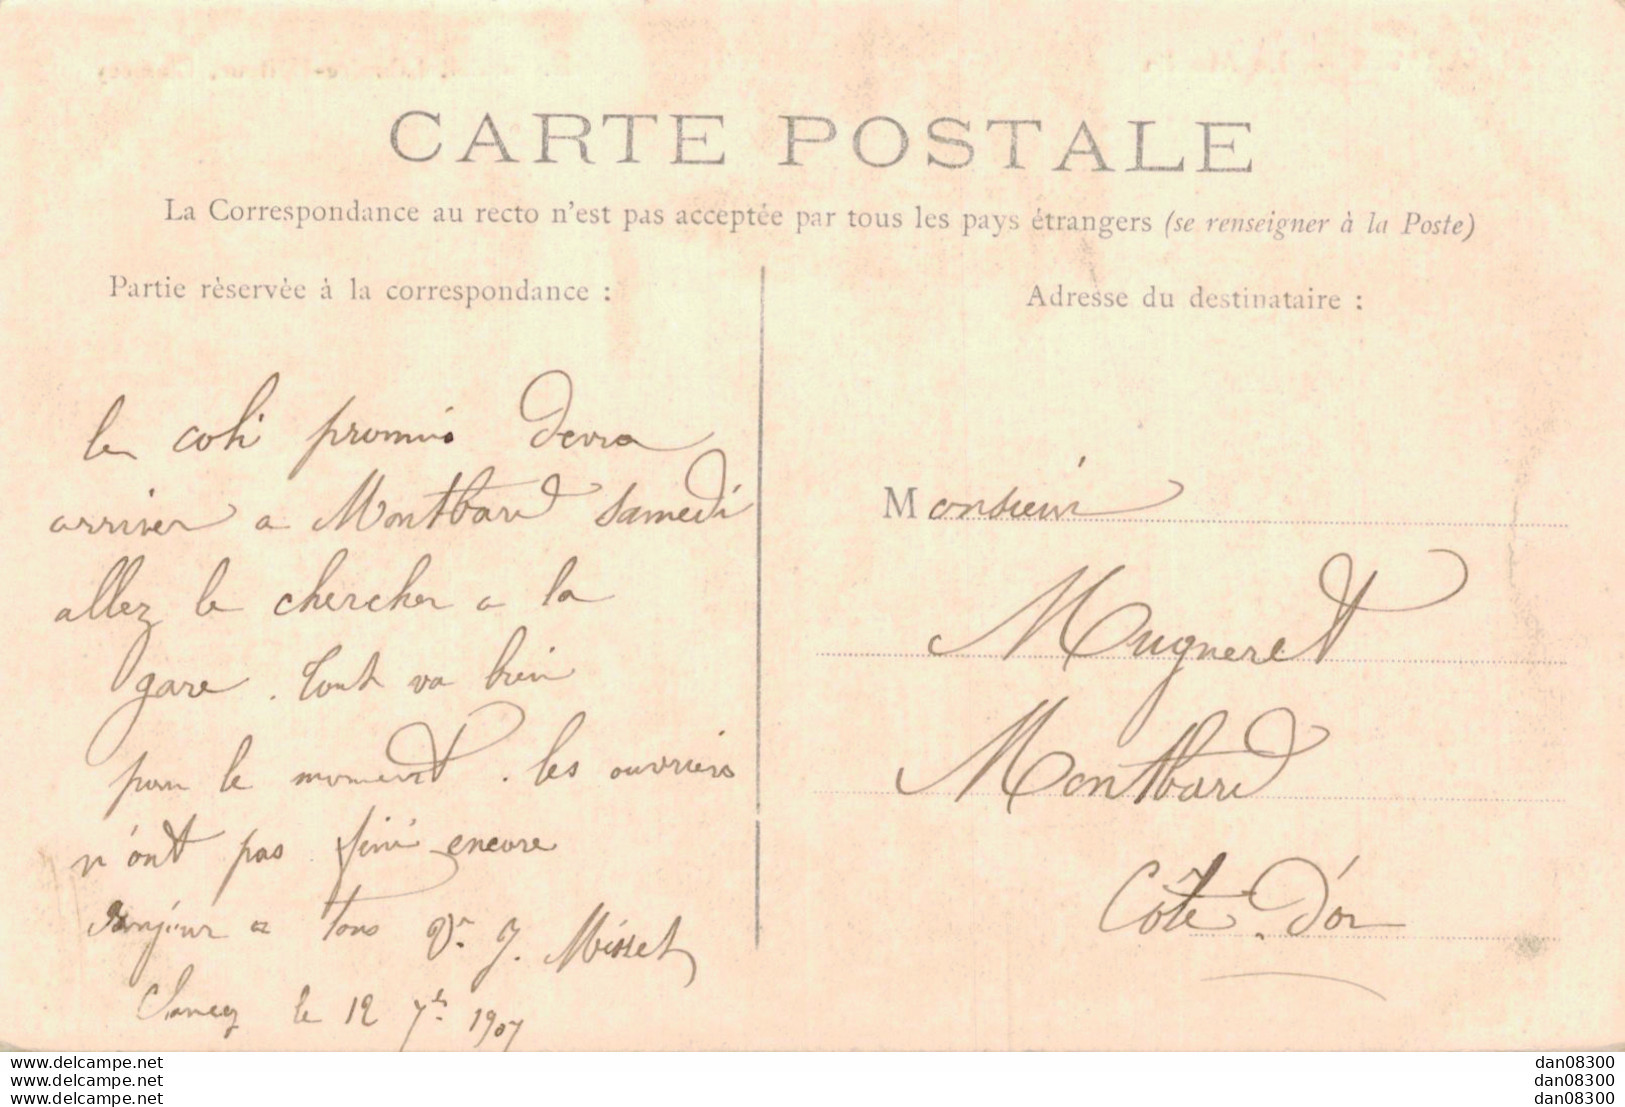 CARTE POSTALE
La Correspondance au recto n'est pas acceptée par tous les pays étrangers (se renseigner à la Poste)
Partie réservée à la correspondance :
le coli promis devra
arriver a Montbard samedi
allez le chercher a la
gare. tout va bien
pour le moment. les ouvriers
n'ont pas fini encore
Bonjour a tous Vve J. Misset
le 12 7bre 1907
Adresse du destinataire :
Monsieur
Mugneret
Montbard
Côte d'or
www.delcampe.net
www.delcampe.net
www.delcampe.net
dan08300
dan08300
dan08300